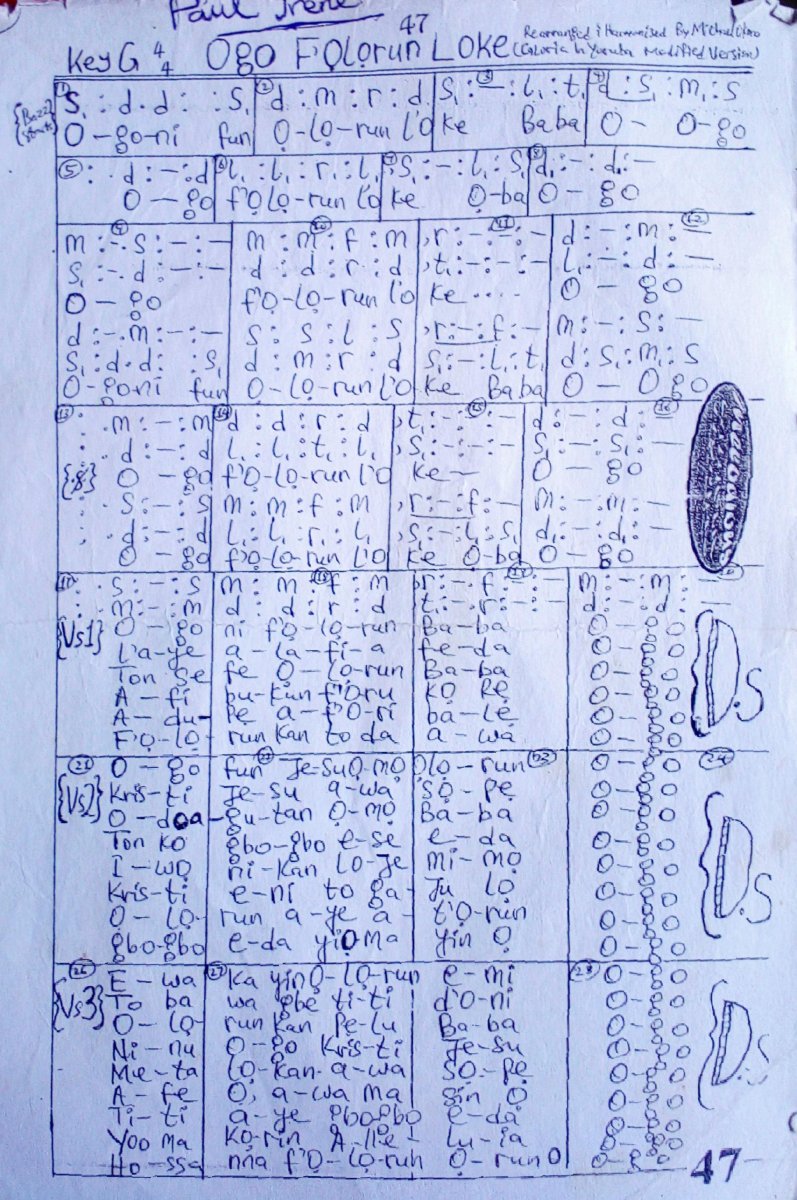 Paul Irene
47
Key G 4/4 Ogo F'Ọlọrun Loke (Rearranged & Harmonised By Michael
(Gloria in Yoruba Modified Version)
1 2 3 4
S₁ : d . d : : S₁ d : m : r : d S₁ : — : l₁ : t₁ d : S₁ : m₁ : s
O – go – ni fun Ọ – lọ – run l'O ke Baba O – O – go
5 6 7 8
: d : — : d l₁ : l₁ : r₁ : l₁ S₁ : — : l₁ : S₁ d₁ : — : d₁ : —
O – go f'Ọ lọ – run l'O ke Ọ – ba O – go
9 10 11 12
m : – . s : — : — m : m : f : m , r : — : — : — d : — : m : —
S₁ : – . d : — : — d : d : r : d , t₁ : — : — : — l₁ : — : d : —
O – go f'Ọ – lọ – run l'O ke . . . . O – go
d : – . m : — : — s : s : l : s , r : — : f : — m : — : s : —
S₁ : d . d : : S₁ d : m : r : d s₁ : — : l₁ : t₁ d : S₁ : m₁ : s
O – go ni fun Ọ – lọ – run l'O ke Baba O – O go
13 14 15 16
: m : — : m d : d : r : d , t₁ : — : — : — d : — : d : —
: d : — : d l₁ : l₁ : t₁ : l₁ , S₁ : — : — : — S₁ : — : S₁ : —
{:S:} O – go f'Ọ – lọ – run l'O ke — O – go
: s : — : s m : m : f : m , r : — : f : — m : — : m : —
: d : — : d l₁ : l₁ : r₁ : l₁ , s₁ : — : l₁ : s₁ d₁ : — : d₁ : —
O – go f'Ọ – lọ – run l'O ke Ọ – ba O – go
17 18 19
: s : — : s m : m : f : m r : — . f : — : — m : — : m : —
: m : — : m d : d : r : d t₁ : — . r : — : — d : — : d : —
{Vs1} O – go ni f'Ọ – lọ – run Ba – ba O – go
L'a – ye a – la – fi – a fe – da O – go
Ton se fe Ọ – lọ – run Ba – ba O – go
A – fi bu – kun f'Oru kọ Rẹ O – go
A – du – pe a – f'O – ri ba – lẹ O – go D.S
F'Ọ – lọ – run kan to da a – wa O – go
21 22 23 24
{Vs2} O – go fun Je – su Ọ – mọ Ọlọ – run O – go
Kris – ti Je – su a – wa 'SỌ – pẹ O – go
O – doa – gu – tan Ọ – mọ Ba – ba O – go
Ton ko gbo – gbo e – se e – da O – go
I – wọ ni – kan lo – Je mi – mọ O – go D.S
Kris – ti e – ni to ga – Ju lọ O – go
Ọ – lọ – run a – ye a – t'Ọ – run O – go
gbo – gbo e – da yiO ma yin Ọ O – go
26 27 28
{Vs3} E – wa ka yin Ọ – lọ – run e – mi O – go
To ba wa gbe ti – ti d'O – ni O – go
Ọ – lọ – run kan Pe – lu Ba – ba O – go
Ni – nu O – go Kris – ti Je – su O – go
Me – ta lọ – kan a – wa SỌ – pẹ O – go D.S
A – fe O, a – wa ma sin Ọ O – go
Ti – ti a – ye gbo gbo e – da O – go
Yoo ma kọ – rin A – lle – lu – ia O – go
Ho – ssa nna f'Ọ – lọ – run Ọ – run O O – go
47